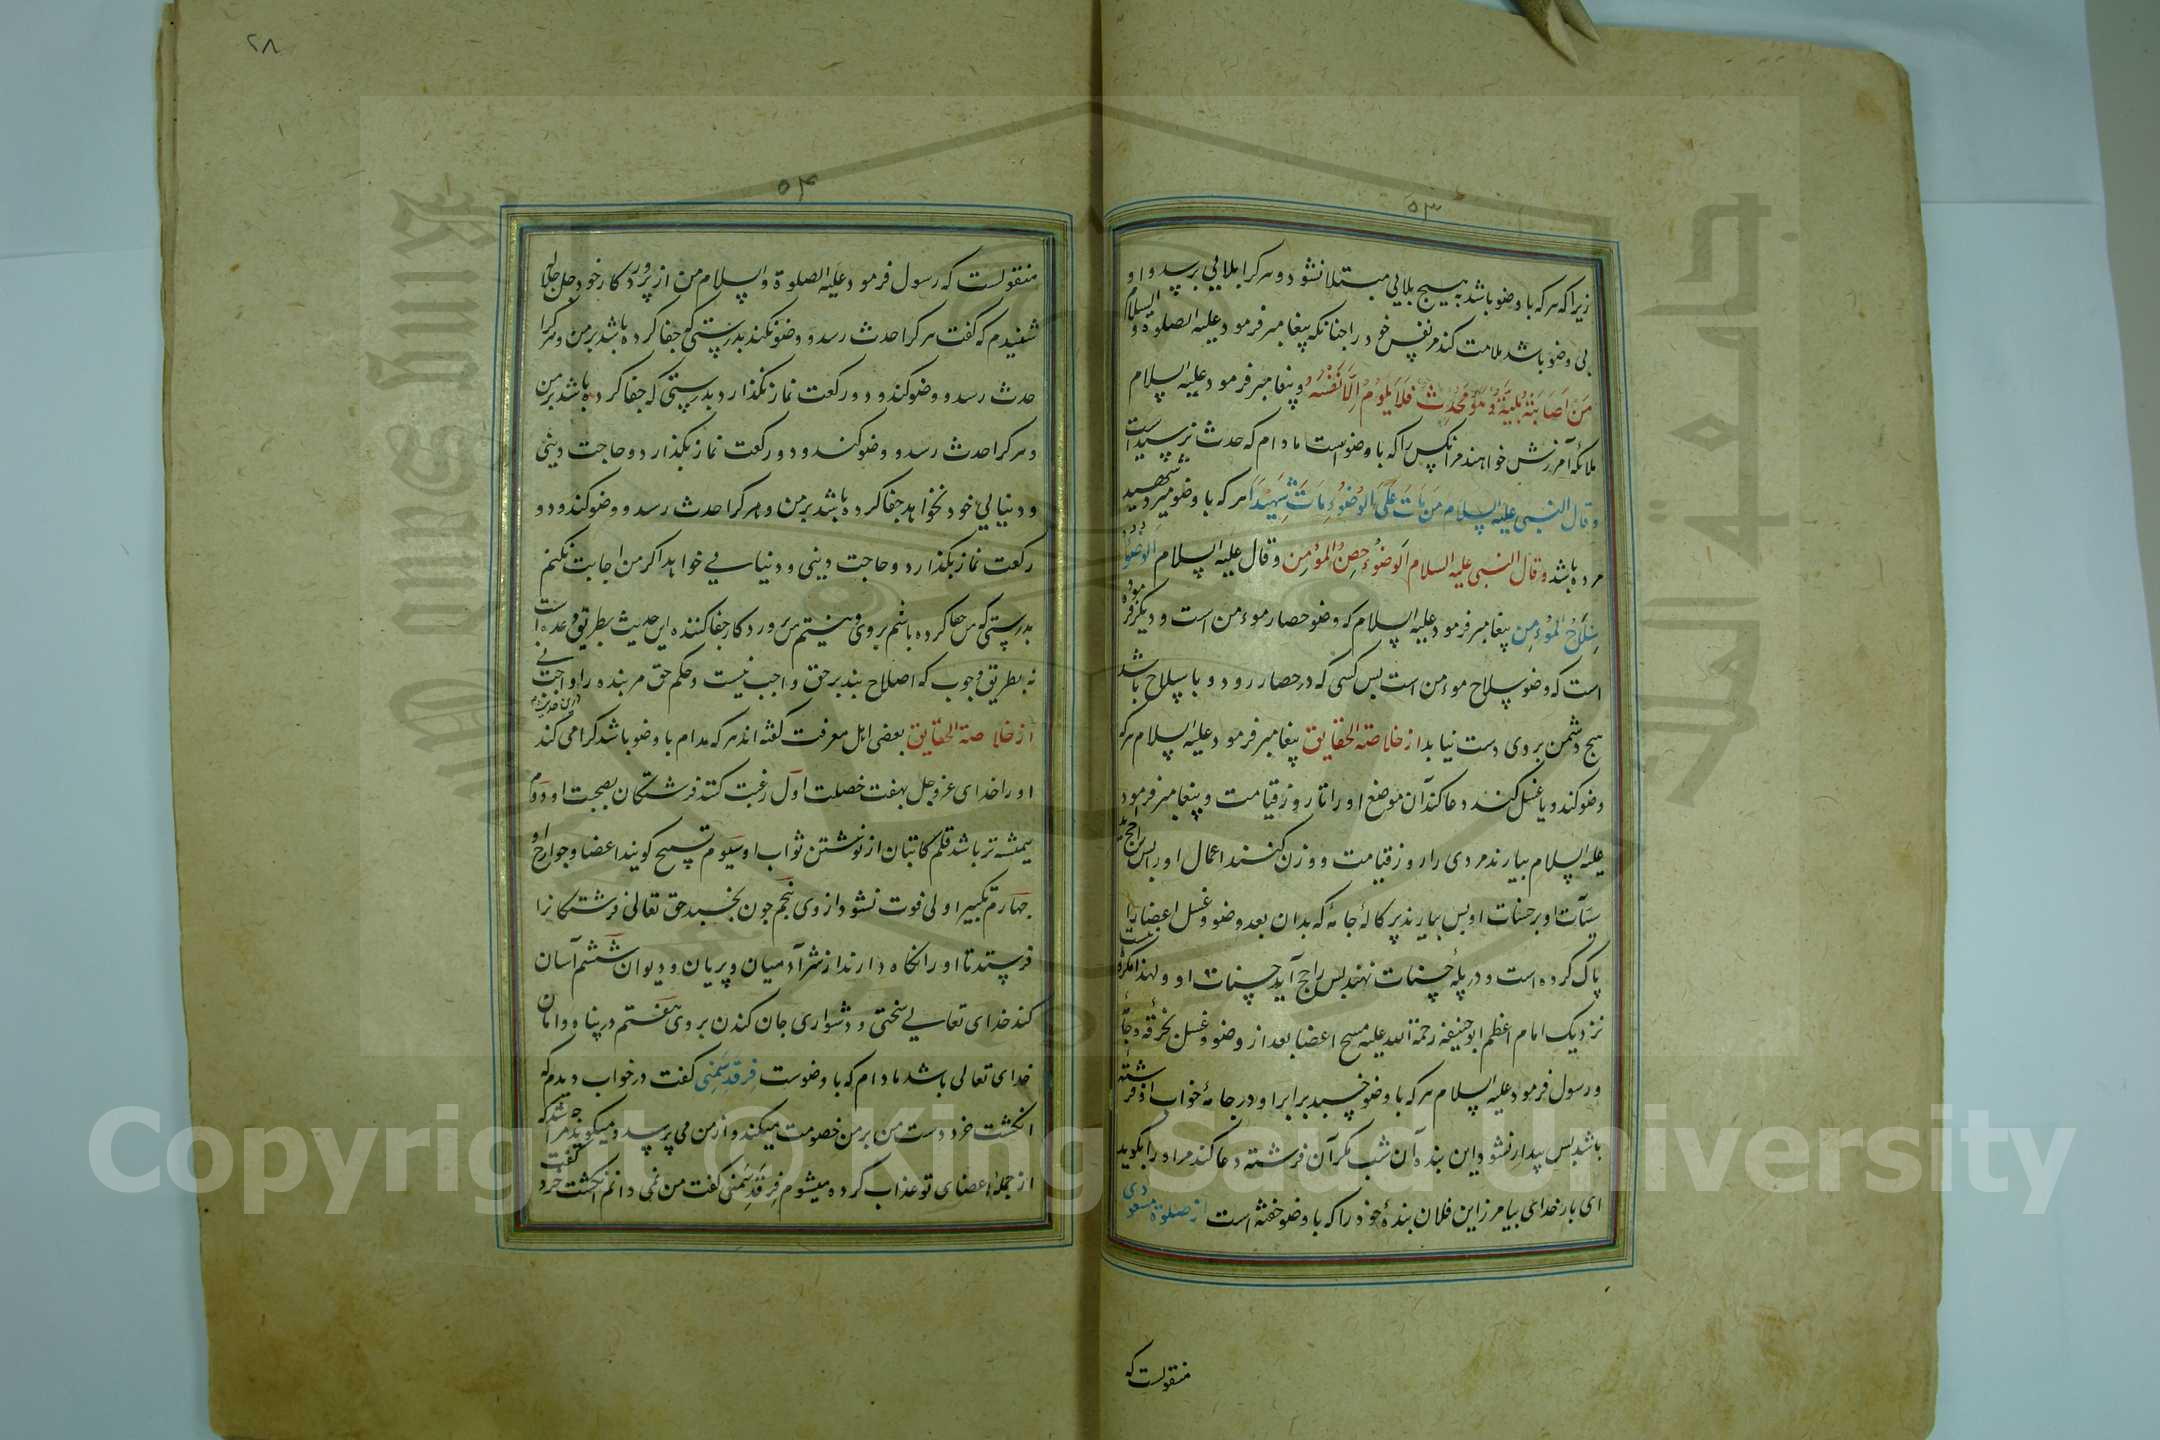 ۵۳
زیرا که هر که با وضو باشد به هیچ بلایی مبتلا نشود و هر کرا بلایی برسد و او
بی وضو باشد ملامت کند مر نفس خود را چنانکه پیغامبر فرمود علیه الصلوة و السلام
مَنْ اَصَابَتْهُ بَلِیَّةٌ وَهُوَ مُحْدِثٌ فَلَا یَلُومُ اِلَّا نَفْسَهُ و پیغامبر فرمود علیه السلام
ملائکه آمرزش خواهند مر آنکس را که با وضوست مادام که حدث نرسیده است
و قال النبی علیه السلام مَنْ مَاتَ عَلَی الوُضُوءِ مَاتَ شَهِیْدًا هر که با وضو میرد شهید
مرده باشد و قال النبی علیه السلام اَلوُضُوءُ حِصنُ المُؤمِنِ و قال علیه السلام الوضوءُ
سِلَاحُ المُؤمِنِ پیغامبر فرمود علیه السلام که وضو حصار مومن است و دیگر فرموده
است که وضو سلاح مومن است پس کسی که در حصار رود و با سلاح باشد
هیچ دشمن بر وی دست نیابد از خلاصة الحقایق پیغامبر فرمود علیه السلام هر که
وضو کند و یا غسل کند دعا کند آن موضع او را تا روز قیامت و پیغامبر فرمود
علیه السلام بیارند مردی را روز قیامت و وزن کنند اعمال او را پس راجح آید
سیّآت او بر حسنات او پس بیارند پرکالهٔ جامهٔ که بدان بعد وضو و غسل اعضا را
پاک کرده است و در پلهٔ حسنات نهند پس راجح آید حسنات او و لهذا مکروه نیست
نزدیک امام اعظم ابوحنیفه رحمة الله علیه مسح اعضا بعد از وضو و غسل بخرقه و جامهٔ
و رسول فرمود علیه السلام هر که با وضو خسبد برابر او در جامهٔ خواب او فرشته
باشد پس بیدار نشود این بنده آن شب مگر آن فرشته دعا کند مر او را بگوید
ای بار خدای بیامرز این فلان بندهٔ خود را که با وضو خفته است از صلوة مسعودی
منقولست که
۲۸
۵۴
منقولست که رسول فرمود علیه الصلوة و السلام من از پروردگار خود جل جلاله
شنیدم که گفت هر کرا حدث رسد و وضو نکند بدرستی که جفا کرده باشد بر من و هر کرا
حدث رسد و وضو کند و دو رکعت نماز نگذارد بدرستی که جفا کرده باشد بر من
و هر کرا حدث رسد و وضو کند و دو رکعت نماز بگذارد و حاجت دینی
و دنیایی خود نخواهد جفا کرده باشد بر من و هر کرا حدث رسد و وضو کند و دو
رکعت نماز بگذارد و حاجت دینی و دنیایی خواهد اگر من اجابت نکنم
بدرستی که من جفا کرده باشم بر وی و نیستم من پروردگار جفا کننده این حدیث بطریق وعده است
نه بطریق وجوب که اصلاح بنده بر حق واجب نیست و حکم حق مر بنده را واجب نی
از خلاصة الحقایق بعضی اهل معرفت گفته اند هر که مدام با وضو باشد گرامی کند
او را خدای عز و جل بهفت خصلت اول رغبت کنند فرشتگان بصحبت او دوم
همیشه تر باشد قلم کاتبان از نوشتن ثواب او سیوم تسبیح گویند اعضا و جوارح او
چهارم تکبیر اولی فوت نشود از وی پنجم چون بخسبد حق تعالی فرشتگانرا
فرستد تا او را نگاه دارند از شر آدمیان و پریان و دیوان ششم آسان
کند خدای تعالی سختی و دشواری جان کندن بر وی هفتم در پناه و امان
خدای تعالی باشد مادام که با وضوست فرقد سَمَنی گفت در خواب دیدم که
انگشت خرد دست من بر من خصومت میکند و از من می پرسد و میگوید چه شد مرا که
از جملهٔ اعضای تو عذاب کرده میشوم فرقد سَمَنی گفت من نمی دانم انگشت خرد گفت
Copyright © King Saud University